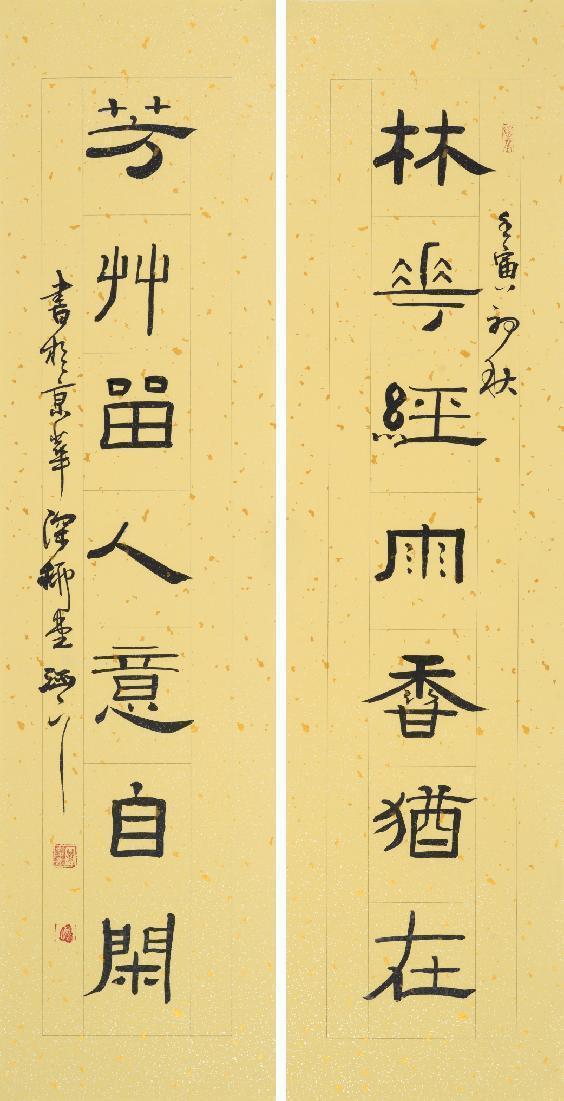 壬寅初秋
林花經雨香猶在
芳艸留人意自閑
書於京華深柳堂